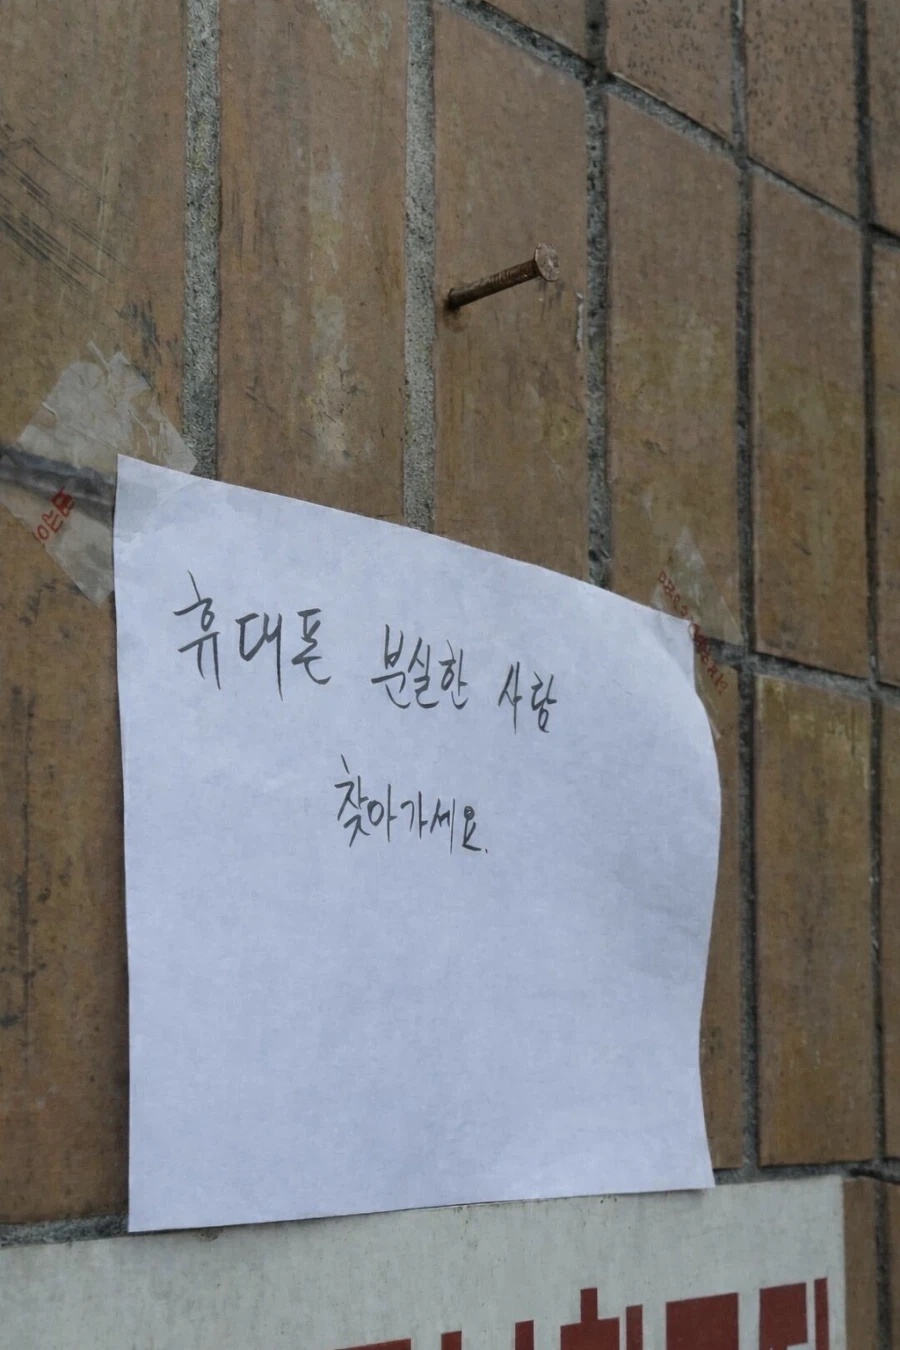 휴대폰 분실한 사람
찾아가세요.